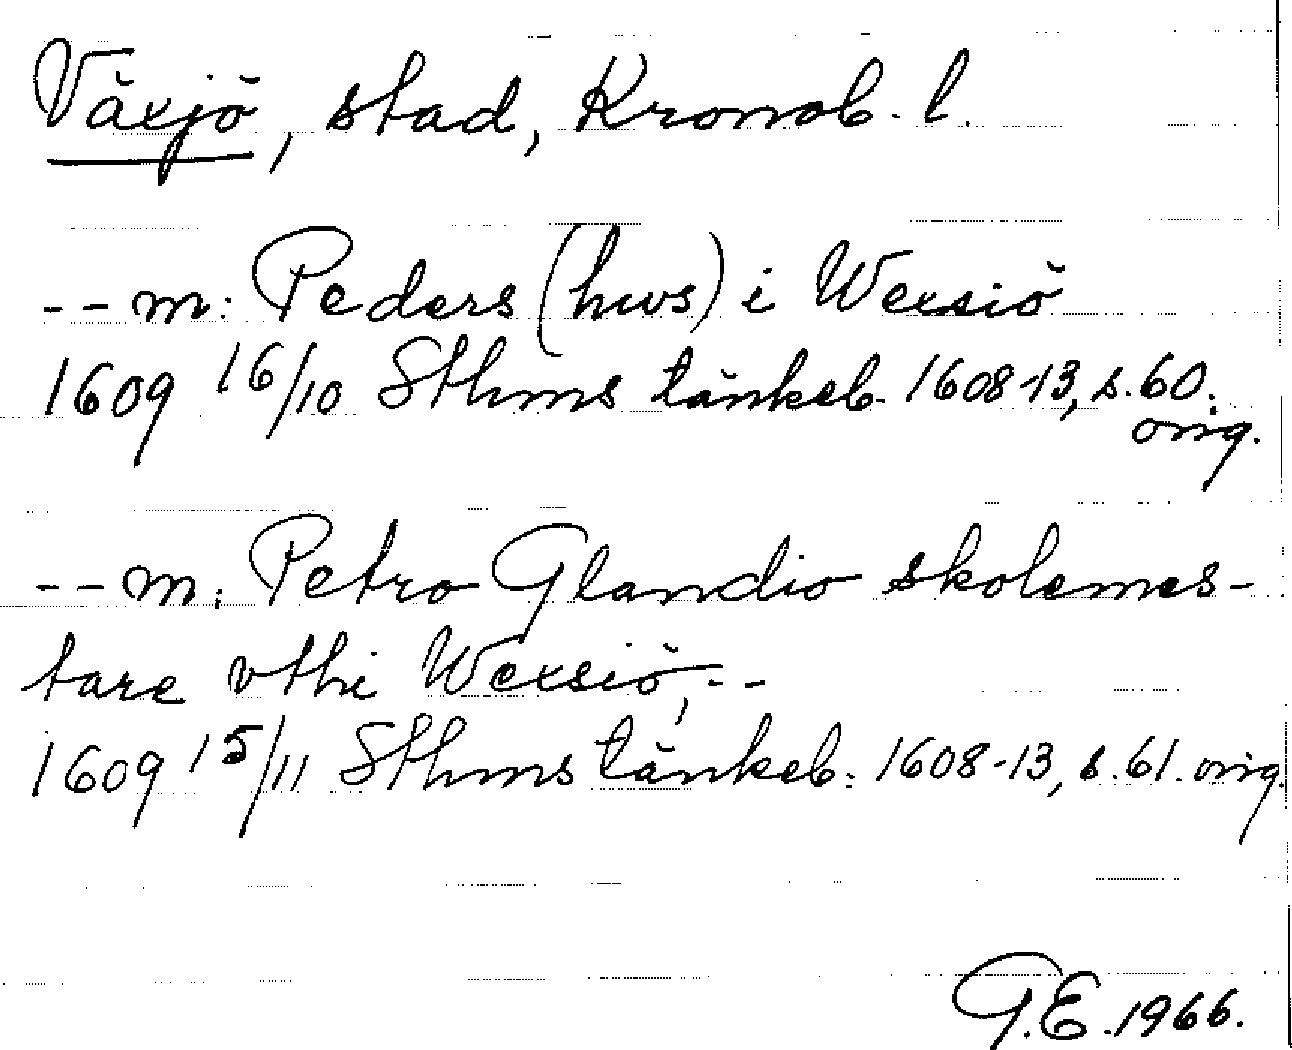 Växjö, stad, Kronob. l.
-- m: Peders (hws) i Wexsiö
1609 16/10 Sthms tänkeb. 1608-13, s. 60.
orig.
-- m. Petro Glandio skolemes-
tare vthi Wexsiö, --
1609 15/11 Sthms tänkeb. 1608-13, s. 61. orig.
G.E. 1966.